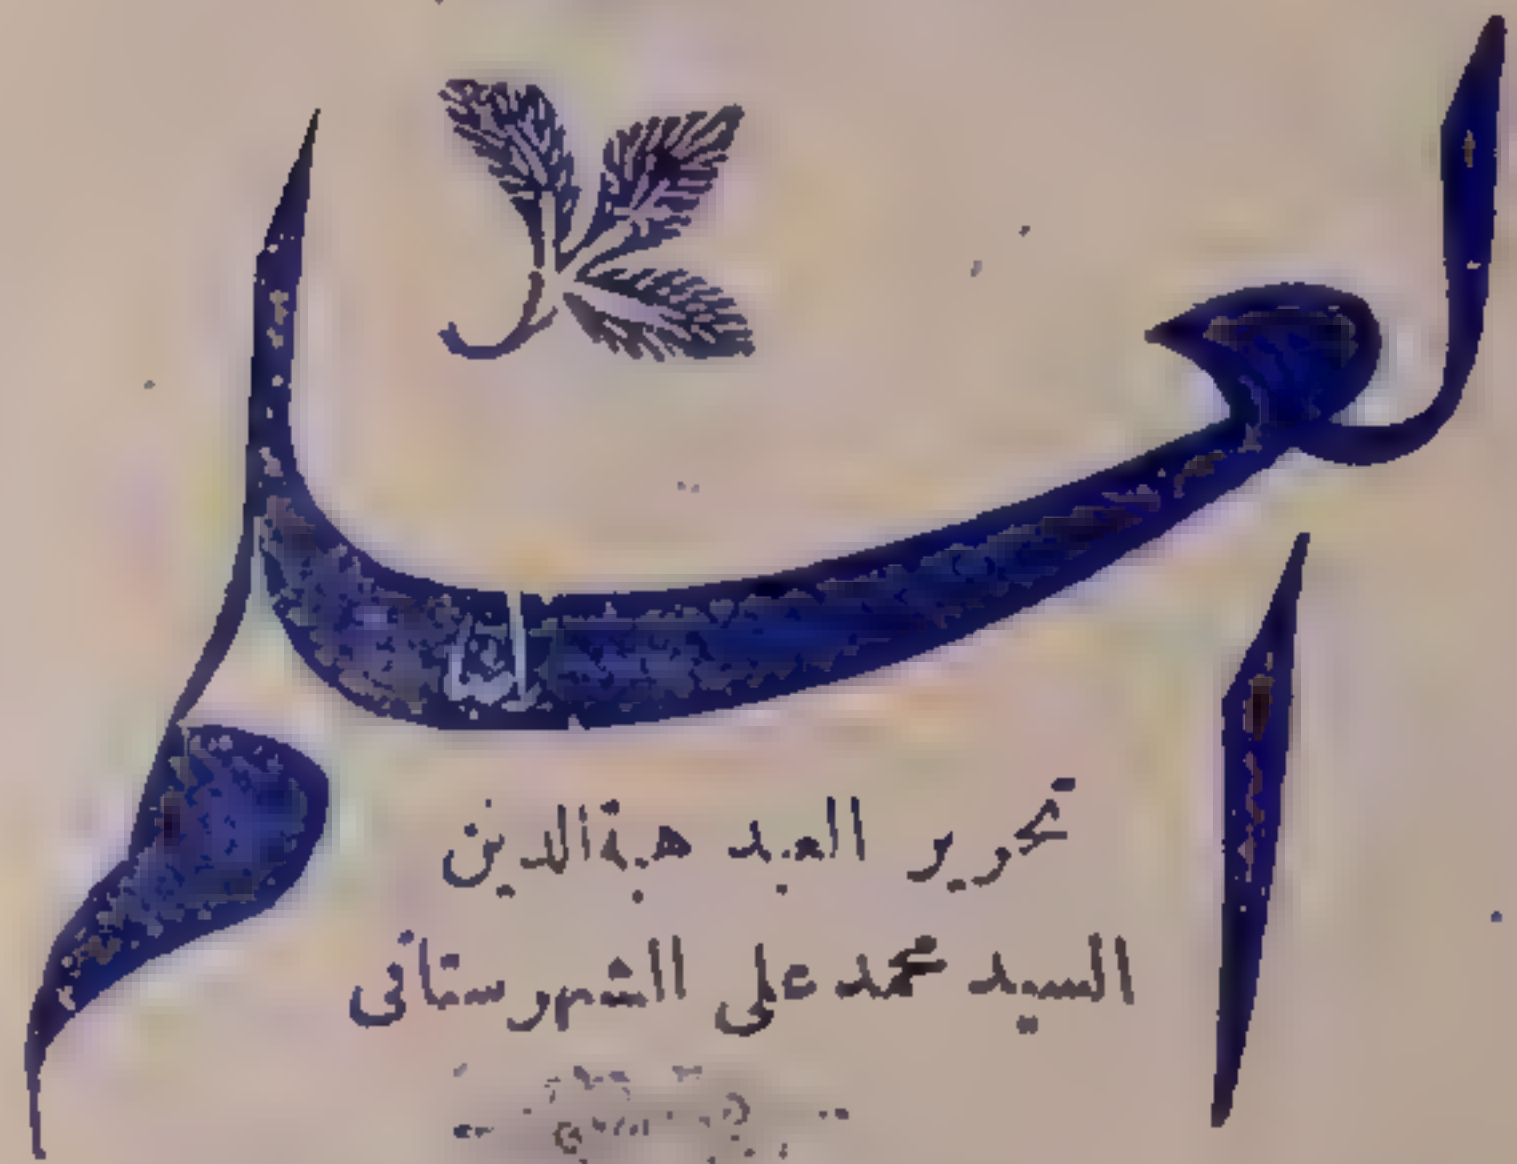 العلم
تحرير العبد هبةالدين
السيد محمد على الشهرستانى